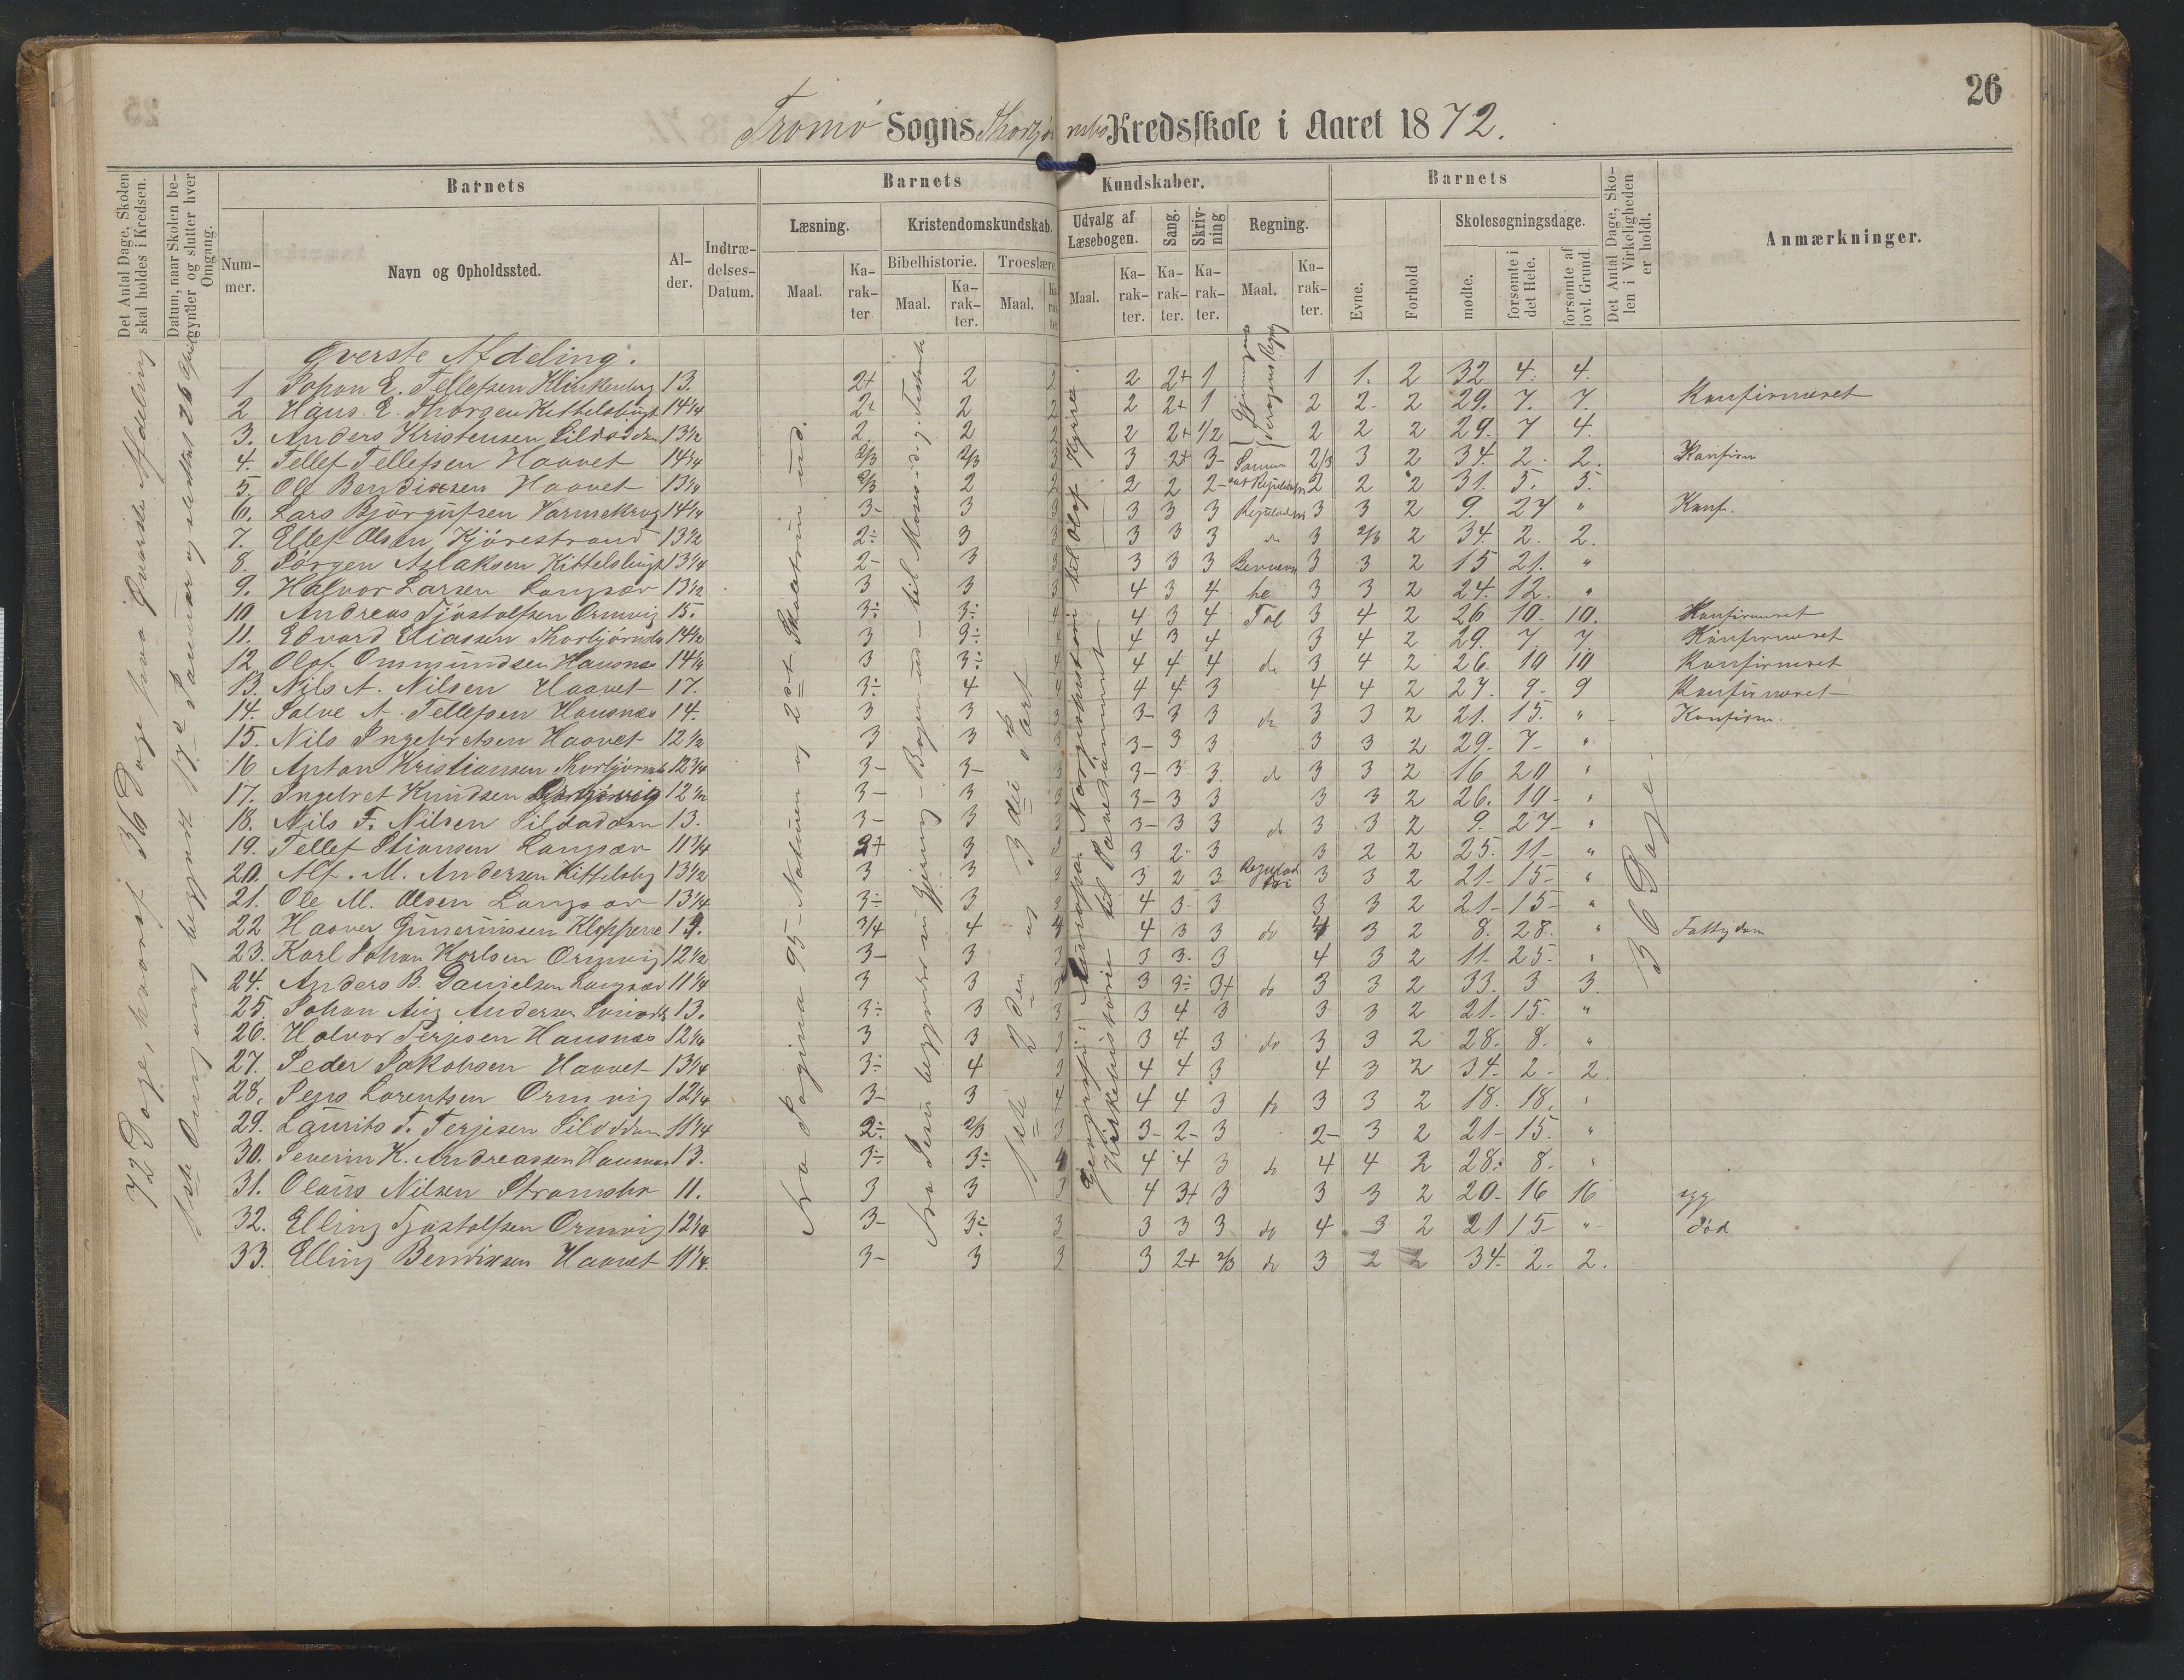 26
Tromø Sogns Thorbjørnsbo Kredsskole i Aaret 1872.
Det Antal Dage, Skolen skal holdes i Kredsen.
Datum, naar Skolen begynder og slutter hver Omgang.
Barnets
Barnets
Kundskaber.
Barnets
Det Antal Dage, Skolen i Virkeligheden er holdt.
Anmærkninger.
Nummer.
Navn og Opholdssted.
Alder.
Indtrædelses-Datum.
Læsning.
Kristendomskundskab.
Udvalg af Læsebogen.
Sang.
Skrivning
Regning.
Evne.
Forhold
Skolesøgningsdage.
Bibelhistorie.
Troeslære.
Maal.
Karakter
Maal.
Karakter.
Maal.
Karakter
Maal.
Karakter.
Karakter.
Karakter.
Maal.
Karakter.
mødte.
forsømte i det Hele.
forsømte af lovl. Grund.
72 Dage, hvoraf 36 Dage paa Øverste Afdeling
1ste Omgang begyndt 17de Januar og sluttet 26 April
Øverste Afdeling.
1 Johan E. Tellefsen Klinkenberg 13. 2+ 2 2 2 2+ 1 1 1. 2 32 4. 4.
2 Hans E. Thorsen Kittelsbugt 14 1/4 2+ 2 2 2 2+ 1 2 2- 2 29. 7. 7. Konfirmeret
3. Anders Kristensen Silodden 13 1/2 2. 2 2 2 2+ 1/2 2 2 2 29. 7 4.
4. Tellef Tellefsen Haavet 14 3/4 2/3 2/3 3 3 2+ 3- 2/3 3 2 34. 2. 2. Konfirm
5. Ole Bendixsen Haavet 13 1/4 2/3 2 2 2 2 2- 2 2 2 31. 5. 5.
6. Lars Bjørgufsen Varmekrog 14 1/4 3- 3 3 3 3 3 Reguladetri 3 3 2 9. 27 " Konf.
7. Ellef Olsen Kjørestrand 13 1/2 2÷ 3 3 3 3 3 do 3 2/3 2 34. 2. 2.
8. Jørgen Aslaksen Kittelsbugt 13 1/4 2- 3 3 3 3 3 3 3 2 15 21. "
9. Halvor Larsen Langsæv 13 1/2 3 3 3 4 3 4 3 3 2 24. 12. "
10 Andreas Tjøstolfsen Ormvig 15. 3÷ 3÷ 4 4 3 4 Tal 3 4 2 26 10- 10. Konfirmeret
11. Edvard Eliassen Thorbjørnsbo 14 1/2 3 3÷ 4 3 4 3 4 2 29. 7 7. Konfirmeret
12 Olaf Ommundsen Hausnæs 14 1/4 3 3÷ 4 4 4 4 do 3 4 2 26. 10 10 Konfirmeret
13. Nils A. Nilsen Haavet 17. 3÷ 4 4 4 4 3 4 4 2 27. 9. 9 Konfirmeret
14. Salve A. Tellefsen Hausnæs 14. 3 3 3 3- 3 3 do 3 3 2 21. 15. " Konfirm.
15. Nils Ingebretsen Haavet 12 1/2 3 3 3 3- 3 3 3 3 2 29- 7- "
16 Anton Kristiansen Thorbjørnsbo 12 3/4 3- 3- 3 3- 3 3 do 3 3 2 16 20 "
17. Ingebret Knudsen 12 1/2 3- 3 3 3- 3 3 3 3 2 26. 10- "
18. Nils F. Nilsen Silodden 13. 3- 3 3 3- 3 3 do 3 3 2 9. 27- "
19. Tellef Stiansen Langsæv 11 3/4 2+ 3 3 3 2- 3 3 2 2 25. 11- "
20. Alf. M. Andersen Kittelsbg 13 1/2 3 3 3 3 2 3 Reguladetri 3 3 2 21- 15- "
21. Ole M. Olsen Langsæv 13 1/4 3÷ 3 3 4 3- 3 3 3 2 21- 15- "
22 Haaver Gunerinssen Kloppene 14. 3/4 4 4 4 3 3 do 4 3 2 8. 28. " Fattigdom
23. Karl Johan Karlsen Ormvig 12 1/2 3- 3 3 3 3. 3 4 3 2 11. 25. "
24. Anders B. Danielsen Langsæv 11 1/4 3 3 3 3 3÷ 3+ do 3 3 2 33. 3 3.
25. Johan Aug Andersen 13. 3÷ 3 3 3 4 3 3 3 2 21. 15. "
26. Halvor Terjesen Hausnæs 12 1/4 3 3 3 3 4 3 do 3 3 2 28. 8. "
27. Peder Jakobsen Haavet 13 1/4 3÷ 4 3 4 4 3 4 3 2 34. 2- 2
28. Jens Lorentsen Ormvig 12 1/4 3- 3 4 4 4 3 do 3 3 2 18. 18. "
29. Laurits T. Terjesen Silodden 11 1/4 2÷ 2/3 3 3- 2- 3 2- 3 2 21- 15. "
30. Severin K. Andreassen Hausnæs 13. 3÷ 3÷ 4 4 4 3 do 4 4 2 28. 8. "
31. Olaus Nilsen Strømsbo 11. 3 3 3 4 3+ 3 3 3 2 20- 16 16 syg
32. Elling Tjøstolfsen Ormvig 12 1/4 3- 3÷ 3 3 3 3 do 4 3 2 21 15 " død
33. Elling Bendixsen Haavet 11 1/4. 3- 3 3 3 2+ 2/3 do 3 2 2 34. 2. 2.
Fra Pagina 95 - Naturen og 2det Skoletrin ud.
Fra Jesu begyndende Gjerning - Bogen ud - til Moses
1ste 2den og 3die Part
Geografi: Europa. Norgeshistorie til Olaf Kyrre.
Kirkehistorie til Pavedømmet
36 Dage.